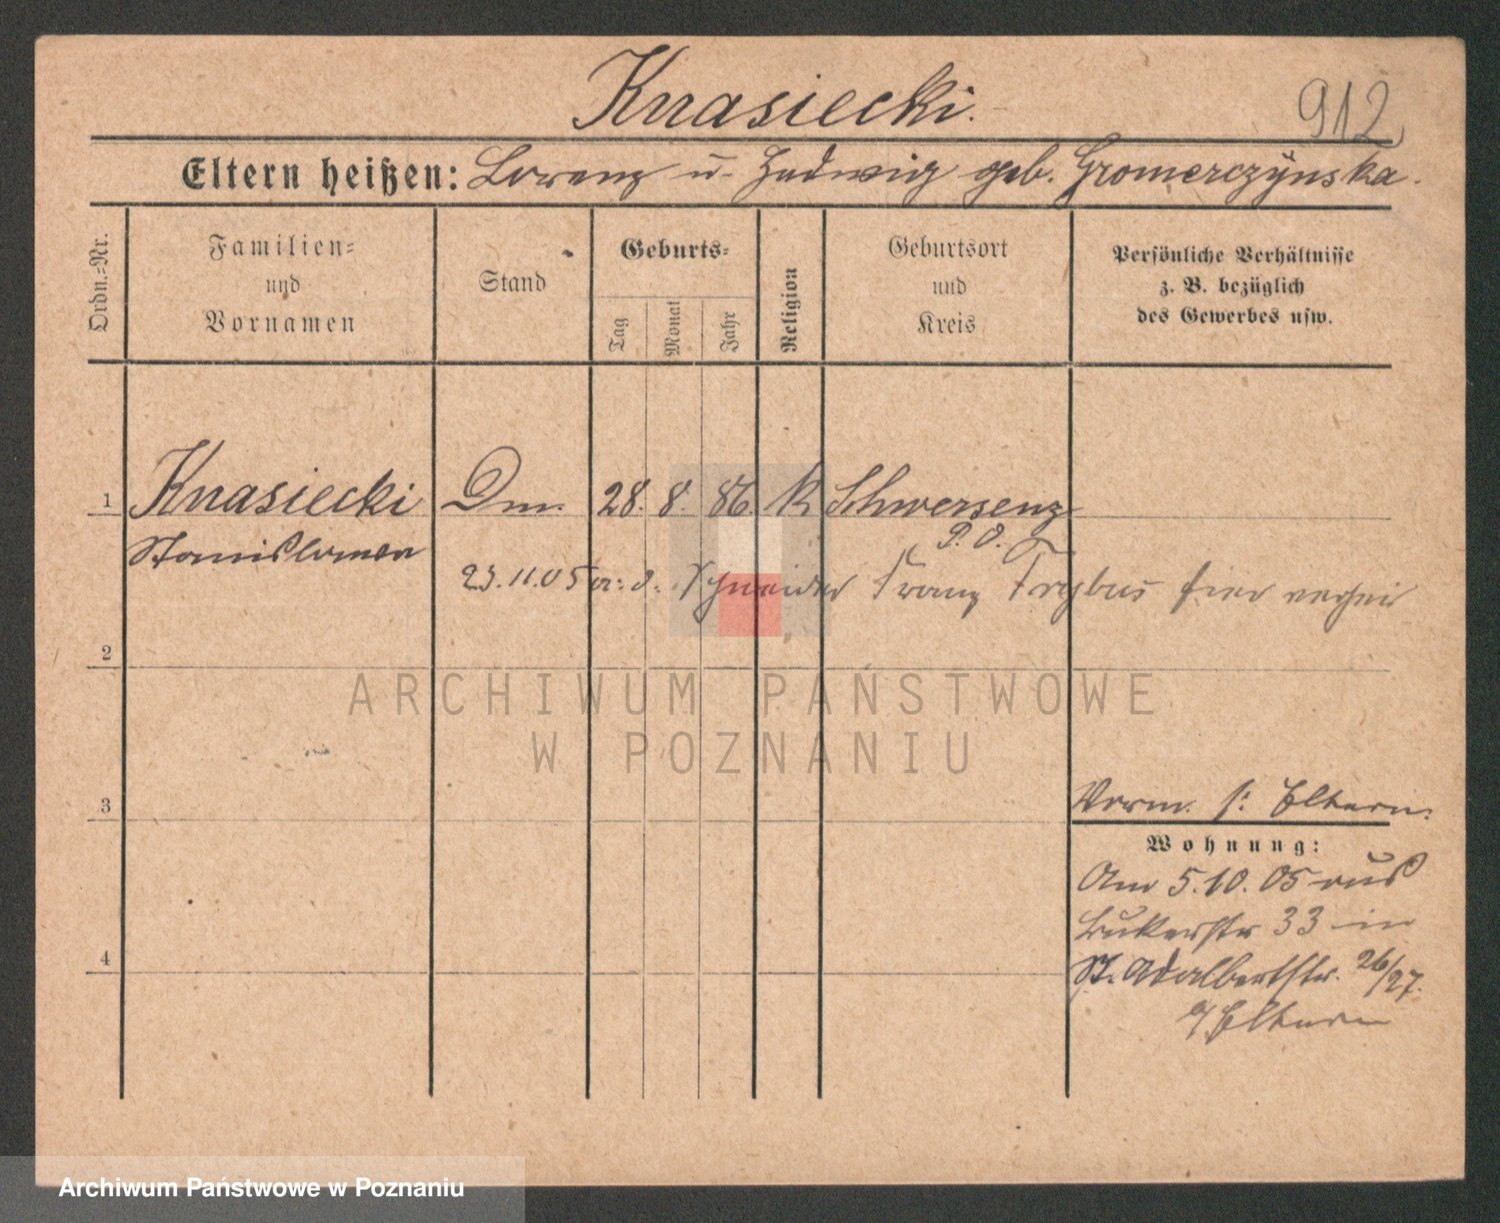 Knasiecki.
912
Eltern heißen: Lorenz u. Hedwig geb. Gromerczynska.
Ordn.=Nr.
Familien=
und
Vornamen
Stand
Geburts=
Tag
Monat
Jahr
Religion
Geburtsort
und
Kreis
Persönliche Verhältnisse
z. B. bezüglich
des Gewerbes usw.
1
Knasiecki
28. 8. 86. K Schwersenz
P. O.
23.11.05 Schneider Franz Trybus hier
2
ARCHIWUM PAŃSTWOWE
W POZNANIU
3
Vorm. s: Eltern.
Wohnung:
Am 5.10.05 aus
Bukerstr 33 in
St. Adalbertstr. 26/27.
b/ Eltern
4
Archiwum Państwowe w Poznaniu